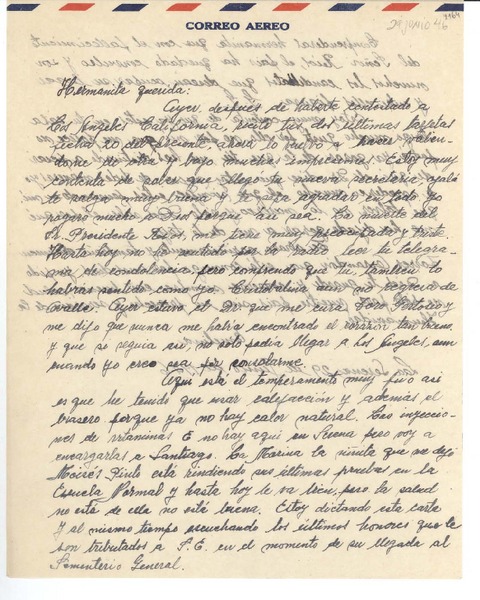 CORREO AEREO
29 Junio 46
Hermanita querida:
Ayer, después de haberte contestado a
Los Angeles California, recibí tus dos últimas tarjetas
fecha 20 del presente ahora lo vuelvo a hacer
de otra y bajo muchas impresiones. Estoy muy
contenta de saber que llegó tu nueva secretaria y ojalá
te salga muy buena y te haga agradar en todo yo
ruego mucho a Dios porque así sea. La muerte del
Sr. Presidente Ríos, me tiene muy y triste.
Hasta hoy no he sentido por la radio leer tu telegra-
ma de condolencia, pero comprendo que tú también lo
habrás sentido como yo Cristobalina aún no regresa de
Ovalle. Ayer estuvo el Dr. que me cura Fdo. Portorio y
me dijo que nunca me había encontrado el corazón tan bueno,
y que si seguía así no solo podía llegar a Los Angeles, aun
cuando yo creo sea por consolarme.
Aquí está el temperamento muy frío así
es que he tenido que usar calefacción y además el
brasero porque ya no hay calor natural. Las inyeccio-
nes de vitaminas E no hay aquí en Serena pero voy a
encargarlas a Santiago. La Marina la niñita que me dejó
Moisés Pinto está rindiendo sus últimas pruebas en la
Escuela Normal y hasta hoy le va bien, pero la salud
no está de ella no está buena. Estoy dictando esta carta
y al mismo tiempo escuchando los últimos honores que le
son tributados a S.E. en el momento de su llegada al
Sementerio General.